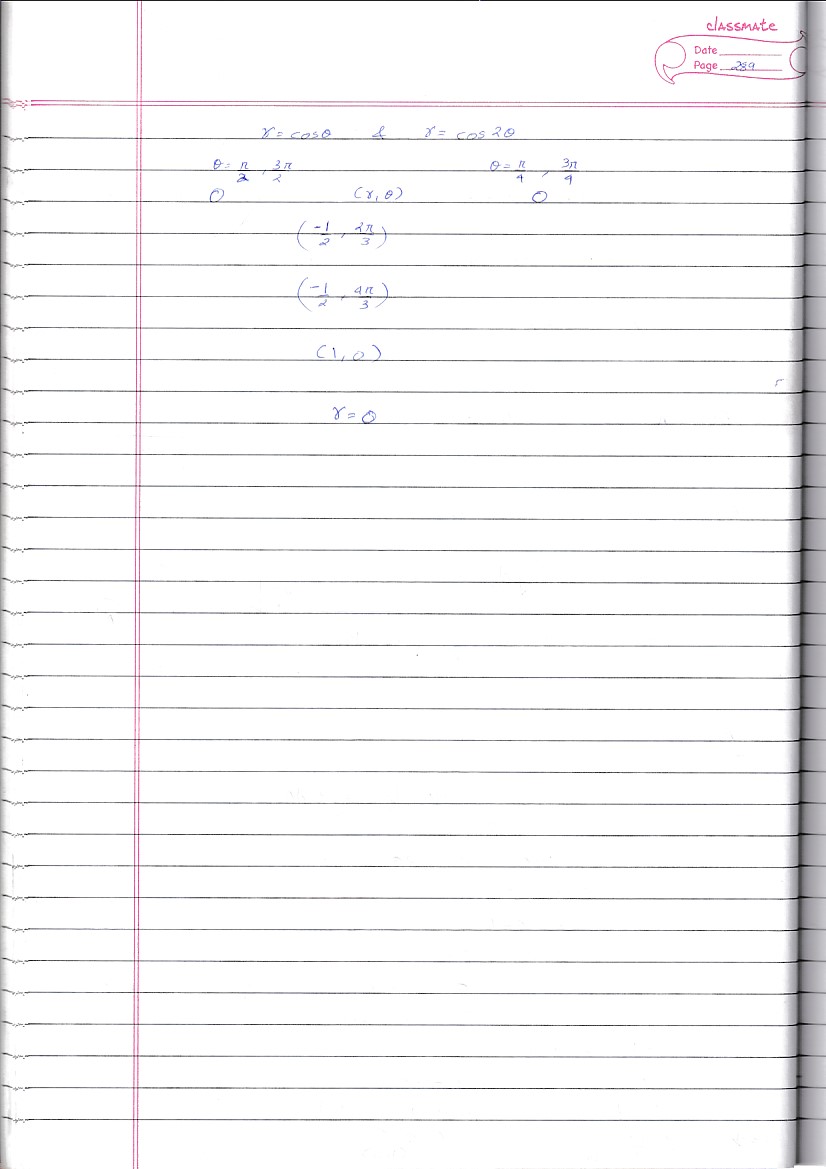 classmate
Date
Page 289
r = cosθ & r = cos 2θ
θ = π/2 , 3π/2 θ = π/4 , 3π/4
0 (r, θ) 0
(-1/2 , 2π/3)
(-1/2 , 4π/3)
(1, 0)
r = 0